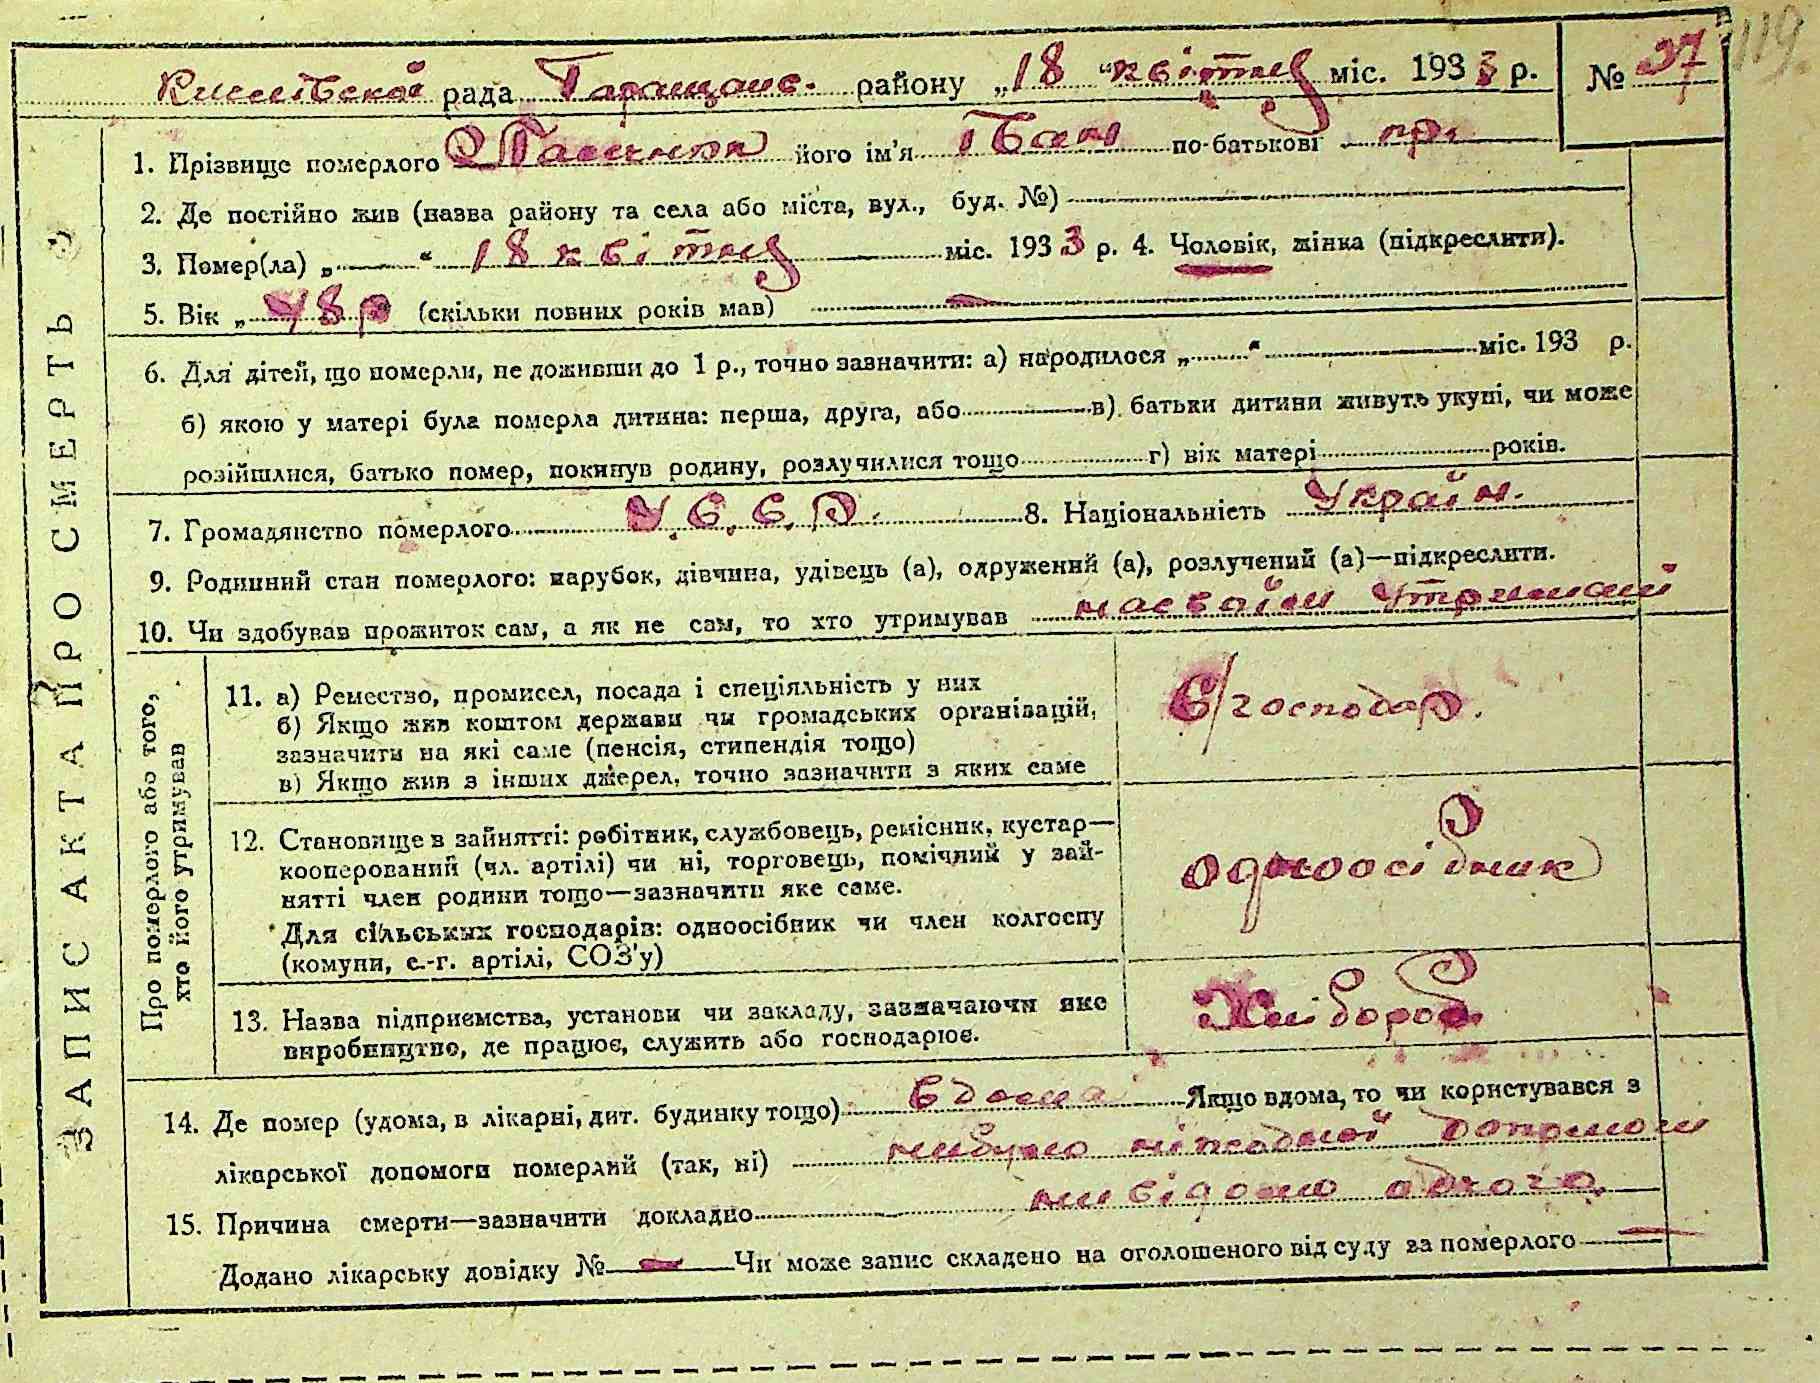 119.
рада Таращанс. району „18 “ квітня міс. 1933 р. № 37
1. Прізвище померлого його ім’я Іван по-батькові пр.
2. Де постійно жив (назва району та села або міста, вул., буд. №)
3. Помер(ла) „ “ 18 квітня міс. 1933 р. 4. Чоловік, жінка (підкреслити).
5. Вік „ 48 р “ (скільки повних років мав) —
6. Для дітей, що померли, не доживши до 1 р., точно зазначити: а) народилося „ “ міс. 193 р.
б) якою у матері була померла дитина: перша, друга, або в) батьки дитини живуть укупі, чи може
розійшлися, батько помер, покинув родину, розлучилися тощо г) вік матері років.
7. Громадянство померлого У.С.С.Р. 8. Національність Україн.
9. Родинний стан померлого: парубок, дівчина, удівець (а), одружений (а), розлучений (а)—підкреслити.
10. Чи здобував прожиток сам, а як не сам, то хто утримував на своїм
ЗАПИС АКТА ПРО СМЕРТЬ
Про померлого або того,
хто його утримував
11. а) Ремество, промисел, посада і спеціяльність у них
б) Якщо жив коштом держави чи громадських організацій,
зазначити на які саме (пенсія, стипендія тощо)
в) Якщо жив з інших джерел, точно зазначити з яких саме
С/господар.
12. Становище в зайнятті: робітник, службовець, ремісник, кустар—
кооперований (чл. артілі) чи ні, торговець, помічний у зай-
нятті член родини тощо—зазначити яке саме.
Для сільських господарів: одноосібник чи член колгоспу
(комуни, с.-г. артілі, СОЗ’у)
одноосібник
13. Назва підприємства, установи чи закладу, зазначаючи яке
виробництво, де працює, служить або господарює.
Хліборob
14. Де помер (удома, в лікарні, дит. будинку тощо) вдома Якщо вдома, то чи користувався з
лікарської допомоги померлий (так, ні) небуло ніякої допомоги
15. Причина смерти—зазначити докладно невідомо
Додано лікарську довідку № — Чи може запис складено на оголошеного від суду за померлого —